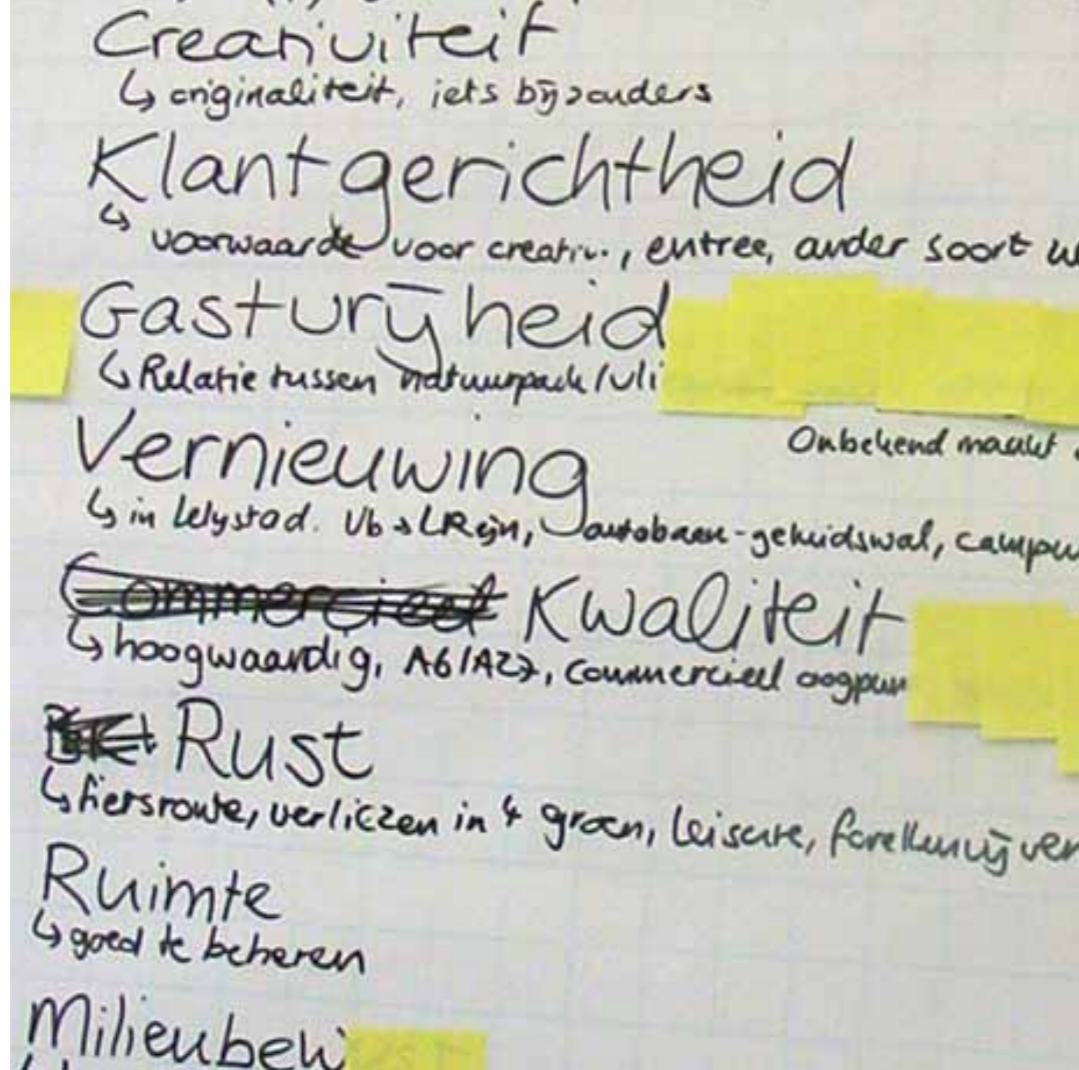 Creativiteit
↳ originaliteit, iets bijzonders
Klantgerichtheid
↳ voorwaarde voor creativ.., entree, ander soort
Gastvrijheid
↳ Relatie tussen natuurpark / vli
Vernieuwing
Onbekend maakt
↳ in Lelystad. Vb → LRijn, autobaan-geluidswal, campu
Commercieel Kwaliteit
↳ hoogwaardig, A6/A27, commercieel oogpun
Rust
↳ fietsroute, verliezen in 't groen, leisure, forellenvijver
Ruimte
↳ goed te beheren
Milieubew